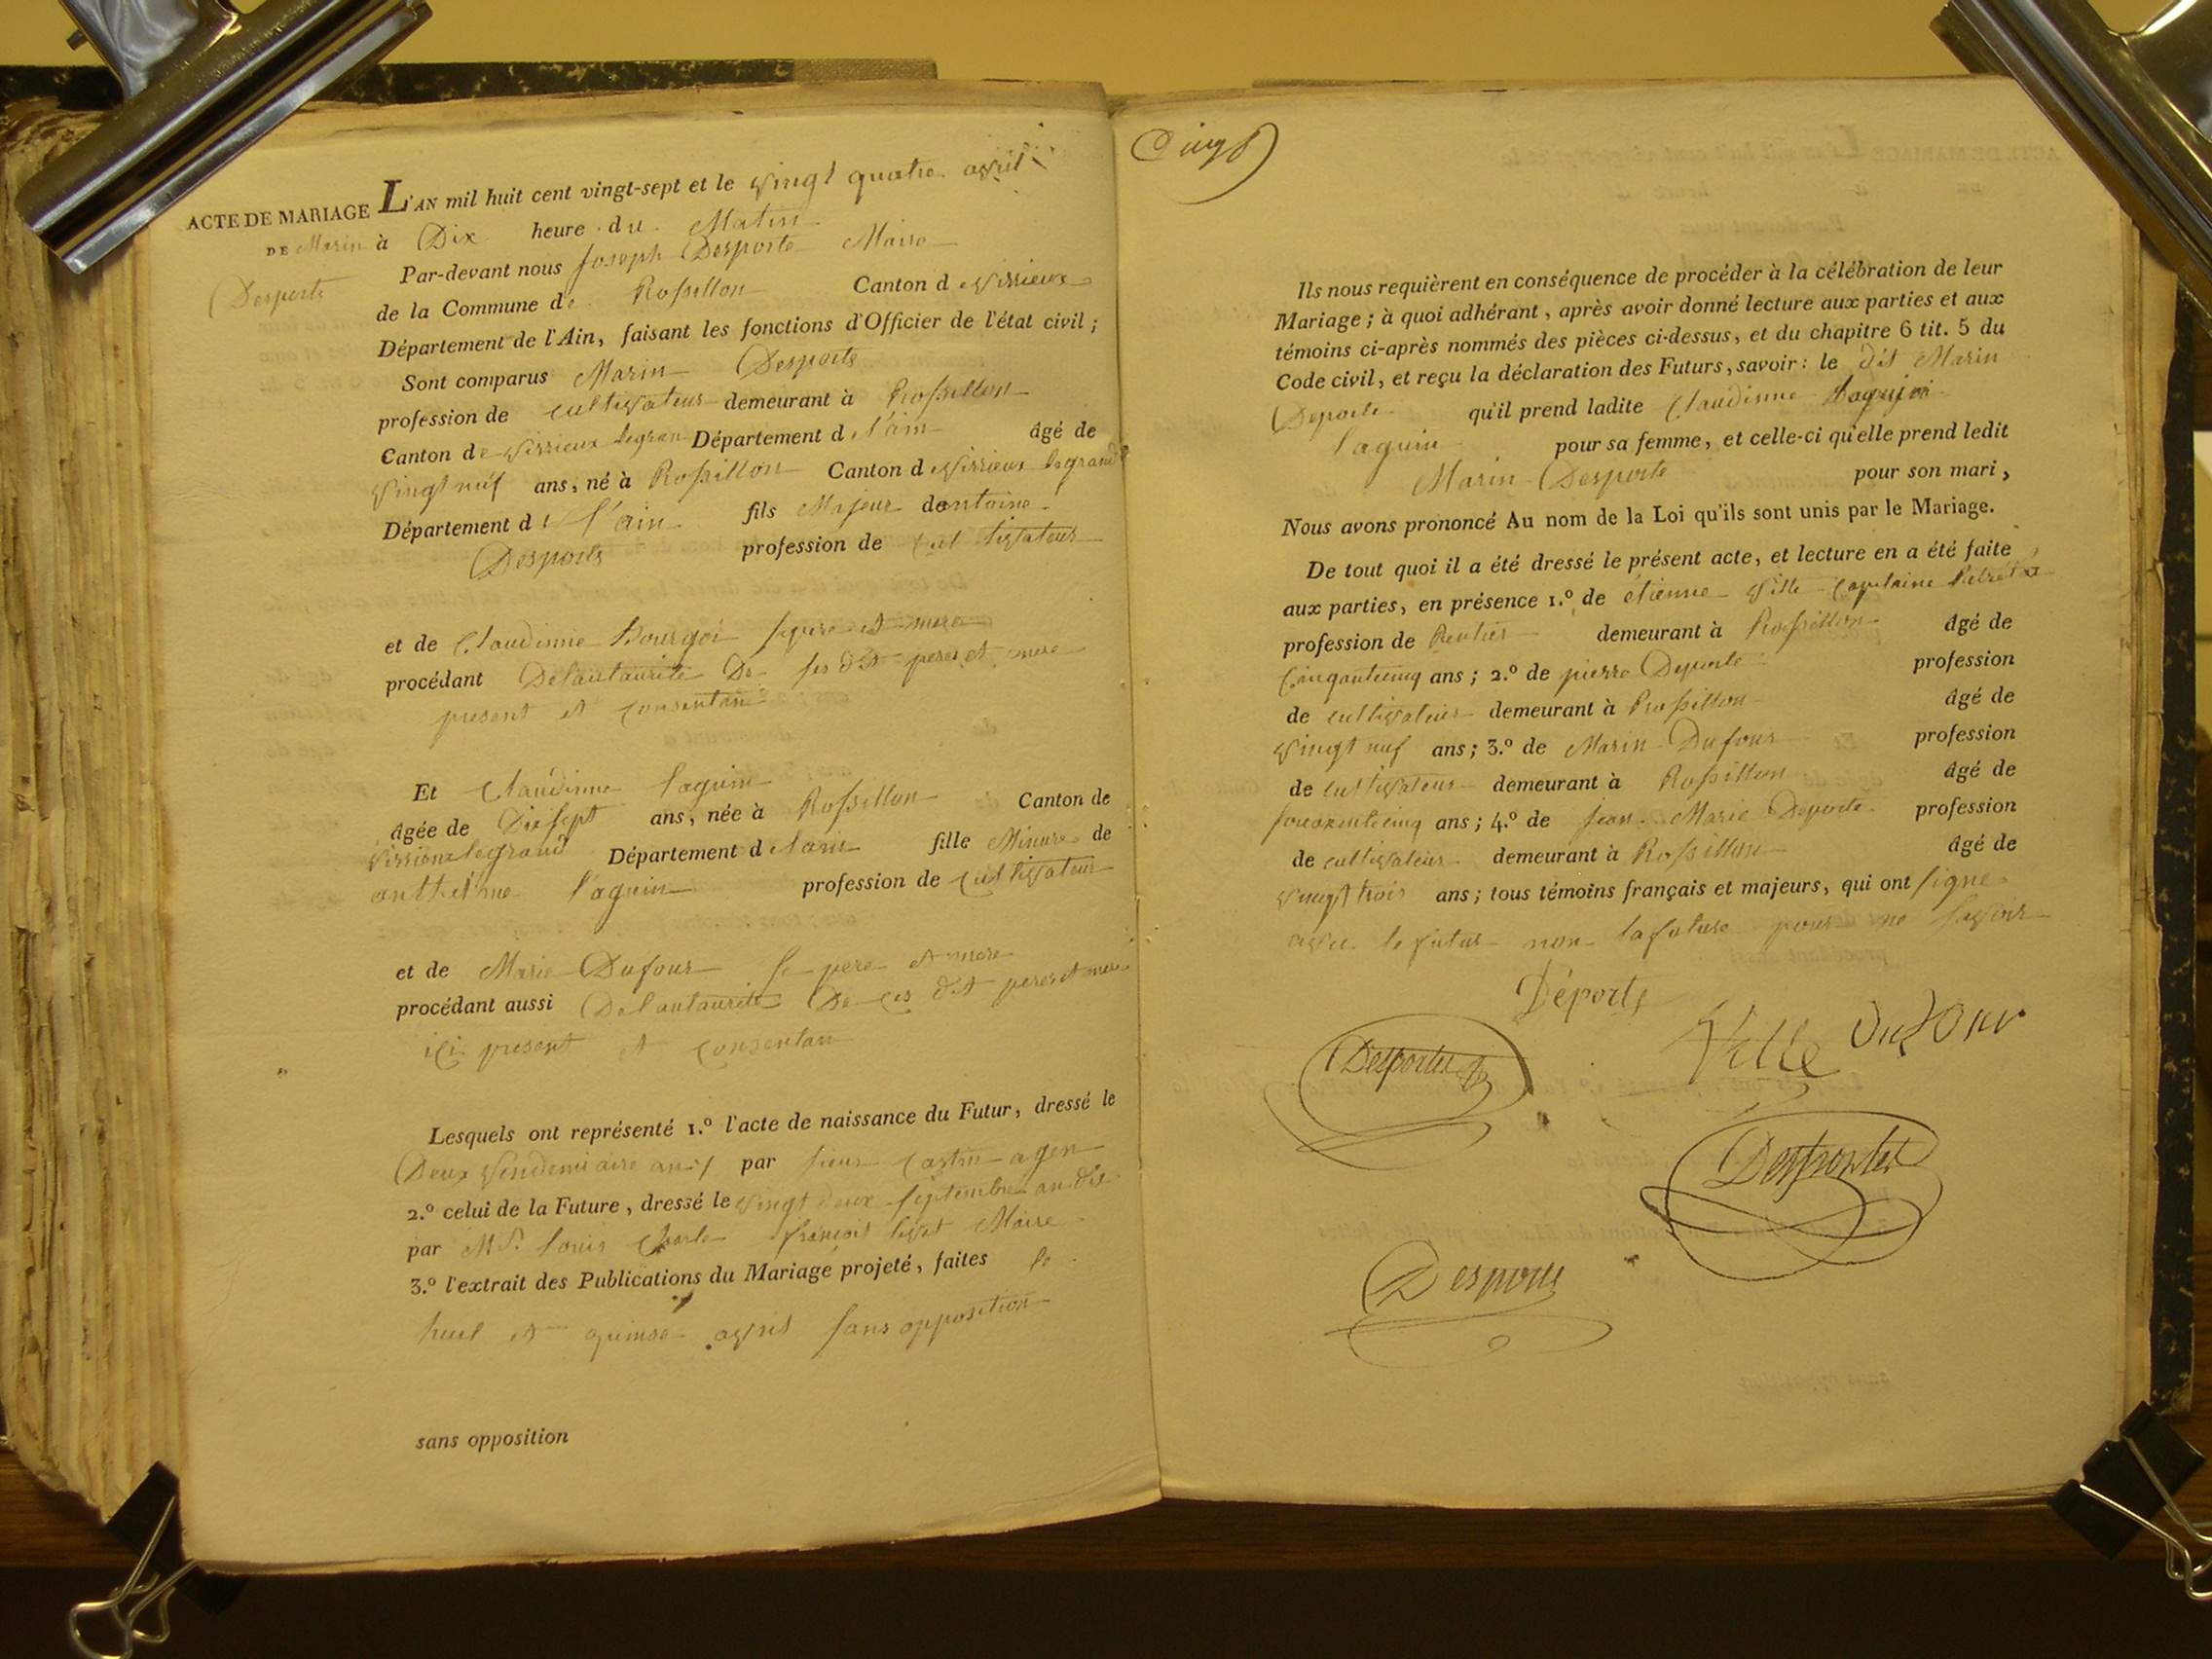 ACTE DE MARIAGE
DE Marin
Desporte
L'AN mil huit cent vingt-sept et le vingt quatre avril
à Dix heure du Matin
Par-devant nous Joseph Desporte Maire
de la Commune de Rossillon Canton d virrieux
Département de l'Ain, faisant les fonctions d'Officier de l'état civil ;
Sont comparus Marin Desporte
profession de cultivateur demeurant à Rossillon
Canton de virrieux legran Département d l'ain âgé de
vingt neuf ans, né à Rossillon Canton d virrieux legrand
Département d l'ain fils Majeur dantoine
Desporte profession de cultivateur
et de Claudinne Bourgoi père et mere
procédant Delautaurite De ses dit peres et mere
present et consentant
Et Claudinne laguin
âgée de Dixsept ans, née à Rossillon Canton de
virrieux legrand Département d lain fille Minure de
anthelme laguin profession de cultivateur
et de Marie Dufour pere et mere
procédant aussi Delautaurite De ces dit peres et mere
ici present et consentan
Lesquels ont représenté 1.º l'acte de naissance du Futur, dressé le
Deux vendemiaire an par sieur agen
2.º celui de la Future, dressé le vingt deux septembre an dix
par Mr. louis Charle françois Maire
3.º l'extrait des Publications du Mariage projeté, faites le
huit et quinse avril sans opposition
sans opposition
Cinq
Ils nous requièrent en conséquence de procéder à la célébration de leur
Mariage ; à quoi adhérant, après avoir donné lecture aux parties et aux
témoins ci-après nommés des pièces ci-dessus, et du chapitre 6 tit. 5 du
Code civil, et reçu la déclaration des Futurs, savoir : le dit Marin
Deporte qu'il prend ladite Claudinne
laguin pour sa femme, et celle-ci qu'elle prend ledit
Marin Desporte pour son mari,
Nous avons prononcé Au nom de la Loi qu'ils sont unis par le Mariage.
De tout quoi il a été dressé le présent acte, et lecture en a été faite
aux parties, en présence 1.º de étienne ville Capitaine
profession de Rentier demeurant à Rossillon âgé de
Cinquantecinq ans ; 2.º de pierre Deporte profession
de cultivateur demeurant à Rossillon âgé de
vingt neuf ans ; 3.º de Marin Dufour profession
de cultivateur demeurant à Rossillon âgé de
ans ; 4.º de jean Marie Deporte profession
de cultivateur demeurant à Rossillon âgé de
vingt trois ans ; tous témoins français et majeurs, qui ont signe
avec le futur non lafuture pour ne savoir
Déporte
Ville Dufour
Desportes
Desportes
Desporte